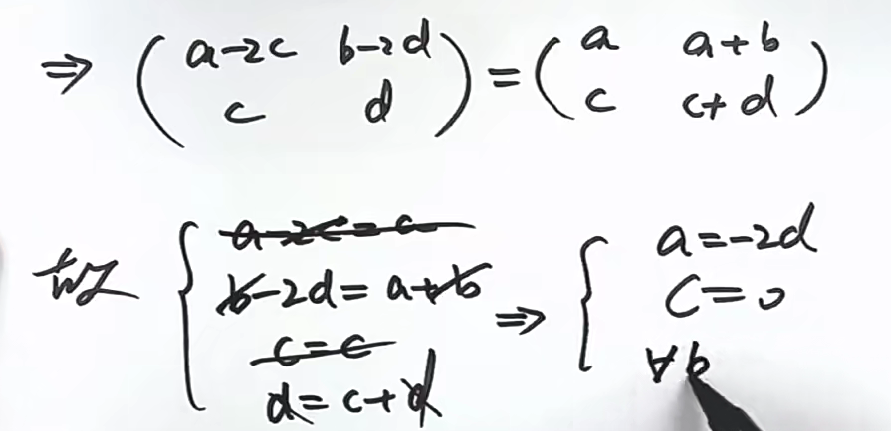 ⇒ ( a-2c b-2d ) = ( a a+b )
( c d ) ( c c+d )
a-2c=a
b-2d=a+b
c=c
d=c+d
⇒ { a=-2d
c=0
∀b